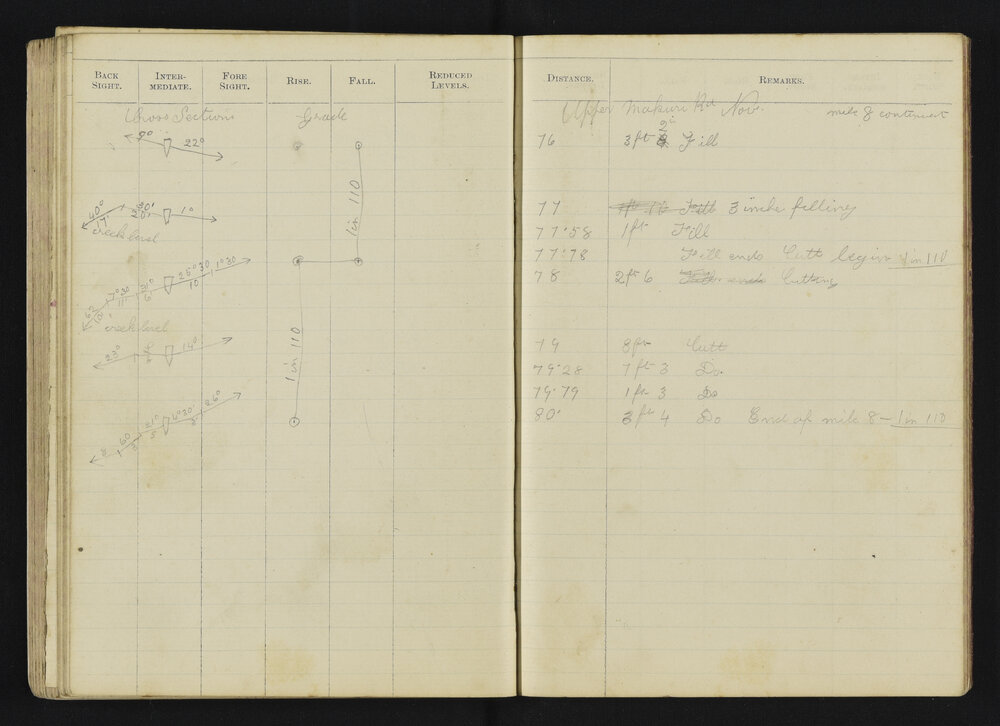 BACK SIGHT. INTER-MEDIATE. FORE SIGHT. RISE. FALL. REDUCED LEVELS.
Cross Section Grade
9° 22°
1 in 110
40° 30' 1°
creek level
7°30 25°30 1°30
10
creek level
23° 14°
1 in 110
60 21° 6°30' 26°
DISTANCE. REMARKS.
Upper Makuri Rd Nov. mile 8 continued
76 3ft 2in Fill
77 3 inche filling
77·58 1ft Fill
77·78 Fill ends Cutt begins 1 in 110
78 2ft 6 Cutting
79 8ft Cutt
79·28 7ft 3 Do.
79·79 1ft 3 Do
80· 3ft 4 Do End of mile 8 — 1 in 110